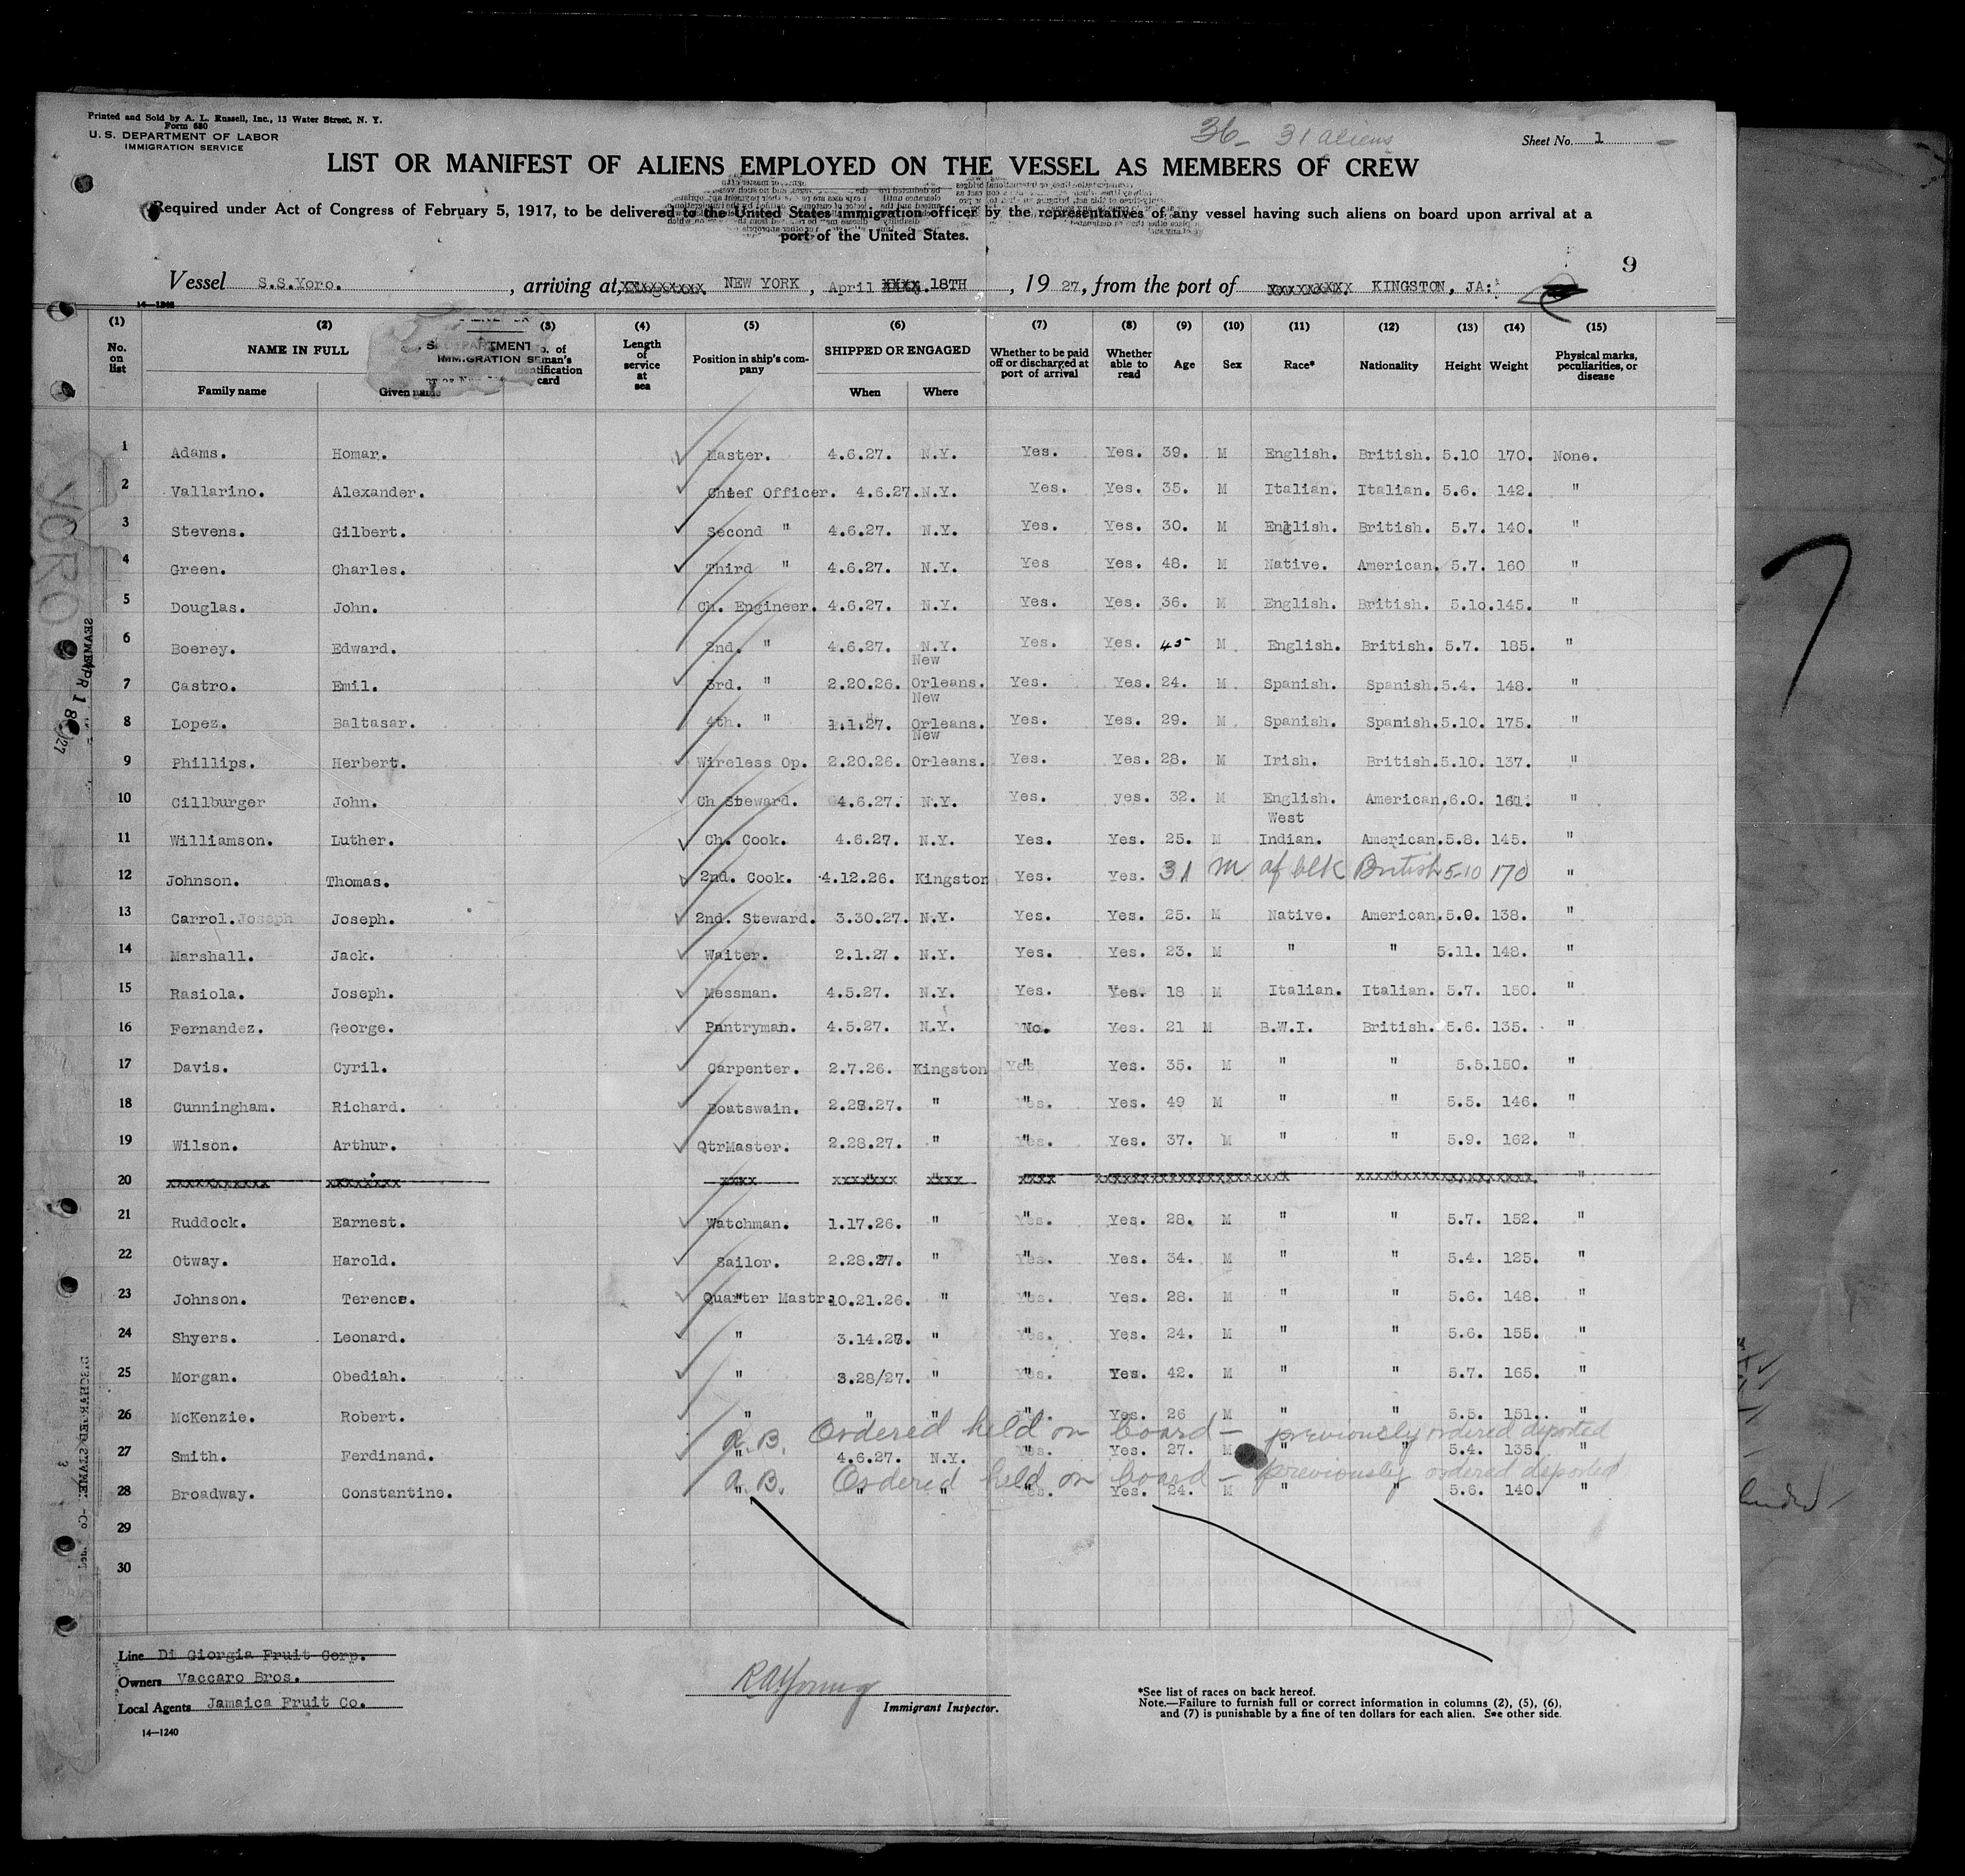 Printed and Sold by A. L. Russell, Inc., 13 Water Street, N. Y.
Form 680
U. S. DEPARTMENT OF LABOR
IMMIGRATION SERVICE
36 - 31 aliens
Sheet No. 1
LIST OR MANIFEST OF ALIENS EMPLOYED ON THE VESSEL AS MEMBERS OF CREW
Required under Act of Congress of February 5, 1917, to be delivered to the United States immigration officer by the representatives of any vessel having such aliens on board upon arrival at a
port of the United States.
9
Vessel S.S.Yoro. , arriving at, NEW YORK , April 18TH , 19 27, from the port of KINGSTON, JA:
14—1240
(1) (2) (3) (4) (5) (6) (7) (8) (9) (10) (11) (12) (13) (14) (15)
No. on list NAME IN FULL Family name Given name Length of service at sea Position in ship's company SHIPPED OR ENGAGED When Where Whether to be paid off or discharged at port of arrival Whether able to read Age Sex Race* Nationality Height Weight Physical marks, peculiarities, or disease
1 Adams. Homar. Master. 4.6.27. N.Y. Yes. Yes. 39. M English. British. 5.10 170. None.
2 Vallarino. Alexander. Chief Officer. 4.6.27. N.Y. Yes. Yes. 35. M Italian. Italian. 5.6. 142. "
3 Stevens. Gilbert. Second " 4.6.27. N.Y. Yes. Yes. 30. M English. British. 5.7. 140. "
4 Green. Charles. Third " 4.6.27. N.Y. Yes Yes. 48. M Native. American. 5.7. 160 "
5 Douglas. John. Ch. Engineer. 4.6.27. N.Y. Yes. Yes. 36. M English. British. 5.10. 145. "
6 Boerey. Edward. 2nd. " 4.6.27. N.Y. Yes. Yes. 45 M English. British. 5.7. 185. "
7 Castro. Emil. 3rd. " 2.20.26. New Orleans. Yes. Yes. 24. M Spanish. Spanish. 5.4. 148. "
8 Lopez. Baltasar. 4th. " 1.1.27. New Orleans. Yes. Yes. 29. M Spanish. Spanish. 5.10. 175. "
9 Phillips. Herbert. Wireless Op. 2.20.26. New Orleans. Yes. Yes. 28. M Irish. British. 5.10. 137. "
10 Cillburger John. Ch Steward. 4.6.27. N.Y. Yes. yes. 32. M English. American. 6.0. 161. "
11 Williamson. Luther. Ch. Cook. 4.6.27. N.Y. Yes. Yes. 25. M West Indian. American. 5.8. 145. "
12 Johnson. Thomas. 2nd. Cook. 4.12.26. Kingston Yes. Yes. 31 m af blk British 5-10 170 "
13 Carrol. Joseph Joseph. 2nd. Steward. 3.30.27. N.Y. Yes. Yes. 25. M Native. American. 5.9. 138. "
14 Marshall. Jack. Waiter. 2.1.27. N.Y. Yes. Yes. 23. M " " 5.11. 148. "
15 Rasiola. Joseph. Messman. 4.5.27. N.Y. Yes. Yes. 18 M Italian. Italian. 5.7. 150. "
16 Fernandez. George. Pantryman. 4.5.27. N.Y. No. Yes. 21 M B.W.I. British. 5.6. 135. "
17 Davis. Cyril. Carpenter. 2.7.26. Kingston " Yes. 35. M " " 5.5. 150. "
18 Cunningham. Richard. Boatswain. 2.28.27. " " Yes. 49 M " " 5.5. 146. "
19 Wilson. Arthur. QtrMaster. 2.28.27. " " Yes. 37. M " " 5.9. 162. "
20 "
21 Ruddock. Earnest. Watchman. 1.17.26. " " Yes. 28. M " " 5.7. 152. "
22 Otway. Harold. Sailor. 2.28.27. " " Yes. 34. M " " 5.4. 125. "
23 Johnson. Terence. Quarter Mastr. 10.21.26. " " Yes. 28. M " " 5.6. 148. "
24 Shyers. Leonard. " 3.14.27. " " Yes. 24. M " " 5.6. 155. "
25 Morgan. Obediah. " 3.28/27. " " Yes. 42. M " " 5.7. 165. "
26 McKenzie. Robert. " " " " Yes. 26 M " " 5.5. 151. "
A.B. Ordered held on board - previously ordered deported
27 Smith. Ferdinand. " 4.6.27. N.Y. " Yes. 27. M " " 5.4. 135. "
A.B. Ordered held on board - previously ordered deported
28 Broadway. Constantine. " " " " Yes. 24. M " " 5.6. 140. "
29
30
YORO
APR 18
Line Di Giorgia Fruit Corp.
Owners Vaccaro Bros.
Local Agents Jamaica Fruit Co.
14—1240
RAYoung
Immigrant Inspector.
*See list of races on back hereof.
Note.—Failure to furnish full or correct information in columns (2), (5), (6),
and (7) is punishable by a fine of ten dollars for each alien. See other side.